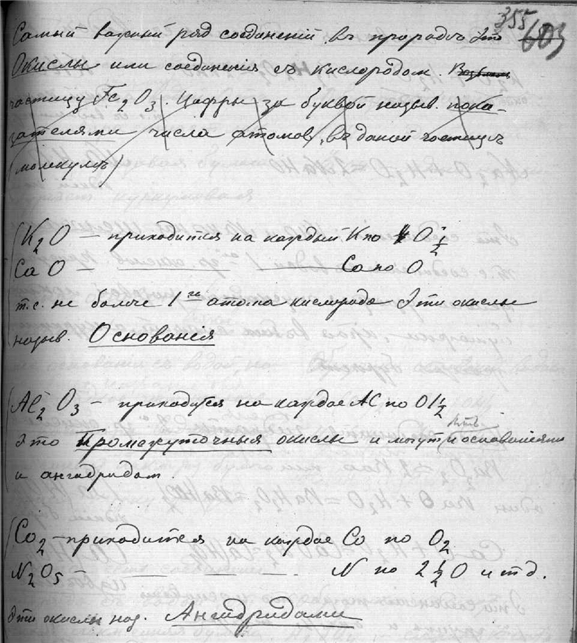 355
603
Самый важный ряд соединений въ природѣ Это
Окислы или соединения съ кислородом.
частицу Fe2O3. Цифры за буквой назыв. пока-
зателями числа атомов, въ даной частицѣ
(молекулѣ)
K2O — приходится на каждый K по O 1/2
CaO — Ca по O
т.е. не более 1го атома кислорода Эти окислы
назыв. Основанія
Al2O3 — приходится на каждое Al по O 1 1/2
Это Промежуточныя окислы и могут быть основаниями
и ангидридом.
Co2 — приходится на каждое Co по O2
N2O5 — N по 2 1/2 O и т.д.
Эти окислы наз. Ангидридами